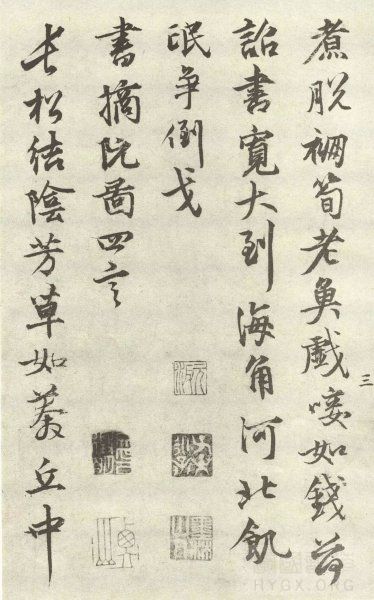 煮脱筍老魚戲唼如錢荷
詔書寬大到海角河北飢
氓争倒戈
書摘阮圖四言
長松結陰芳草如丘中
三
HYGX.ORG